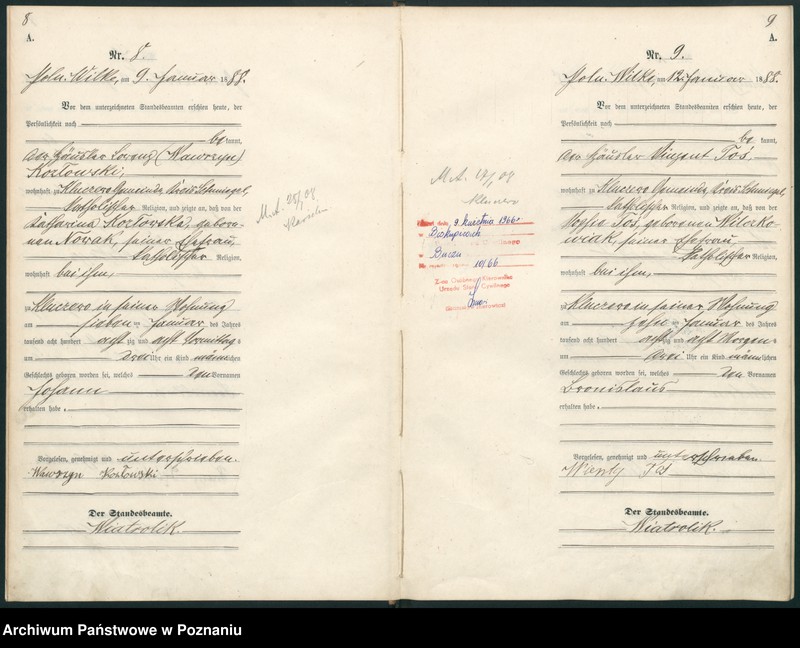 8
A.
Nr. 8.
Poln. Wilke, am 9. Januar 1888.
Vor dem unterzeichneten Standesbeamten erschien heute, der
Persönlichkeit nach
be kannt,
der Häusler Lorenz (Wawrzyn)
Kozłowski,
wohnhaft zu Kluczewo Gemeinde Kreis Schmiegel,
katholischer Religion, und zeigte an, daß von der
Katharina Kozłowska, gebore-
nen Nowak, seiner Ehefrau,
katholischer Religion,
wohnhaft bei ihm,
zu Kluczewo in seiner Wohnung
am sieben ten Januar des Jahres
tausend acht hundert acht zig und acht Vormittags
um drei Uhr ein Kind männlichen
Geschlechts geboren worden sei, welches den Vornamen
Johann
erhalten habe.
Vorgelesen, genehmigt und unterschrieben.
Wawrzyn Kozłowski
Der Standesbeamte.
Wiatrolik.
9
A.
Nr. 9.
Poln. Wilke, am 12. Januar 1888.
Vor dem unterzeichneten Standesbeamten erschien heute, der
Persönlichkeit nach
be kannt,
der Häusler Vinzent Toś
wohnhaft zu Kluczewo Gemeinde Kreis Schmiegel,
katholischer Religion, und zeigte an, daß von der
Sofie Toś, geborenen Wilczko-
wiak, seiner Ehefrau
katholischer Religion,
wohnhaft bei ihm,
zu Kluczewo in seiner Wohnung
am Januar des Jahres
tausend acht hundert acht zig und acht Morgens
um drei Uhr ein Kind männlichen
Geschlechts geboren worden sei, welches den Vornamen
Bronislaus
erhalten habe.
Vorgelesen, genehmigt und unterschrieben.
Der Standesbeamte.
Wiatrolik.
9 kwietnia 1966
10/66
Urzędu Stanu Cywilnego
Archiwum Państwowe w Poznaniu